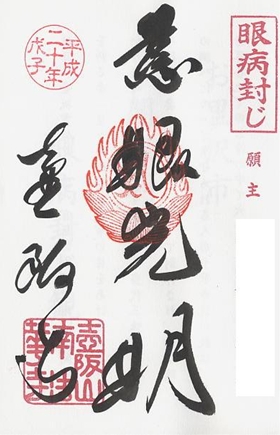 眼病封じ
願主
慈眼光明
平成
二十年
戊子
壷阪寺
壺阪山
南法
華寺